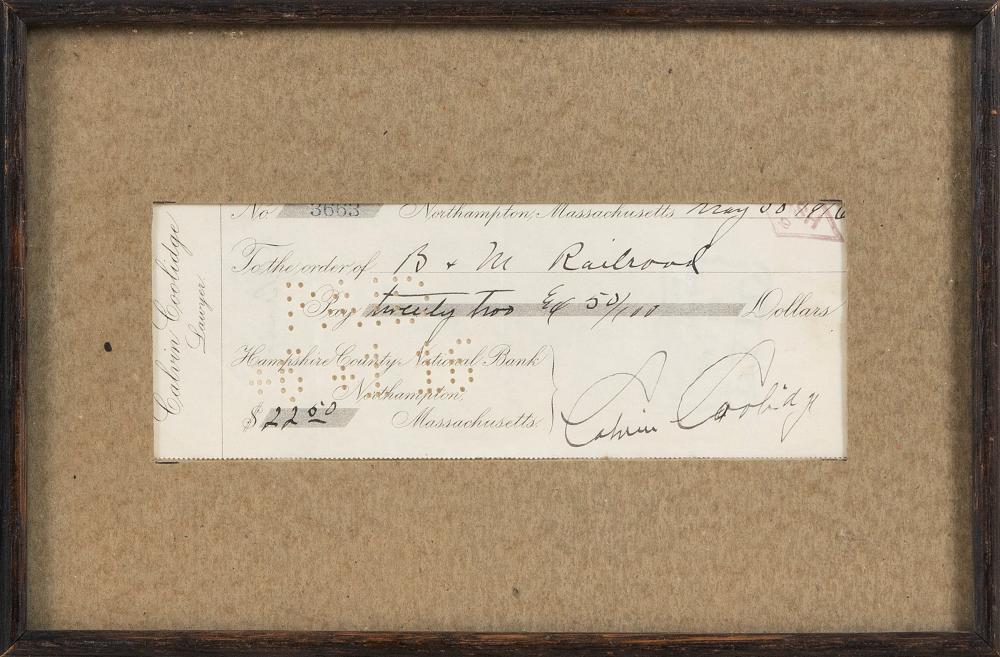 Calvin Coolidge
Lawyer
No 3663 Northampton, Massachusetts May 30 1916
To the order of B & M Railroad
Pay twenty two & 50/100 Dollars
Hampshire County National Bank
Northampton,
Massachusetts.
$ 22 50
Calvin Coolidge
PAID